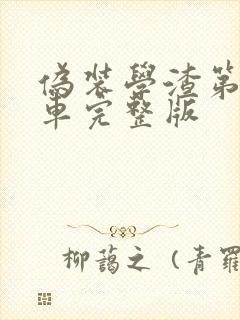 偽裝學渣第
車完整版
柳藹之（青羅